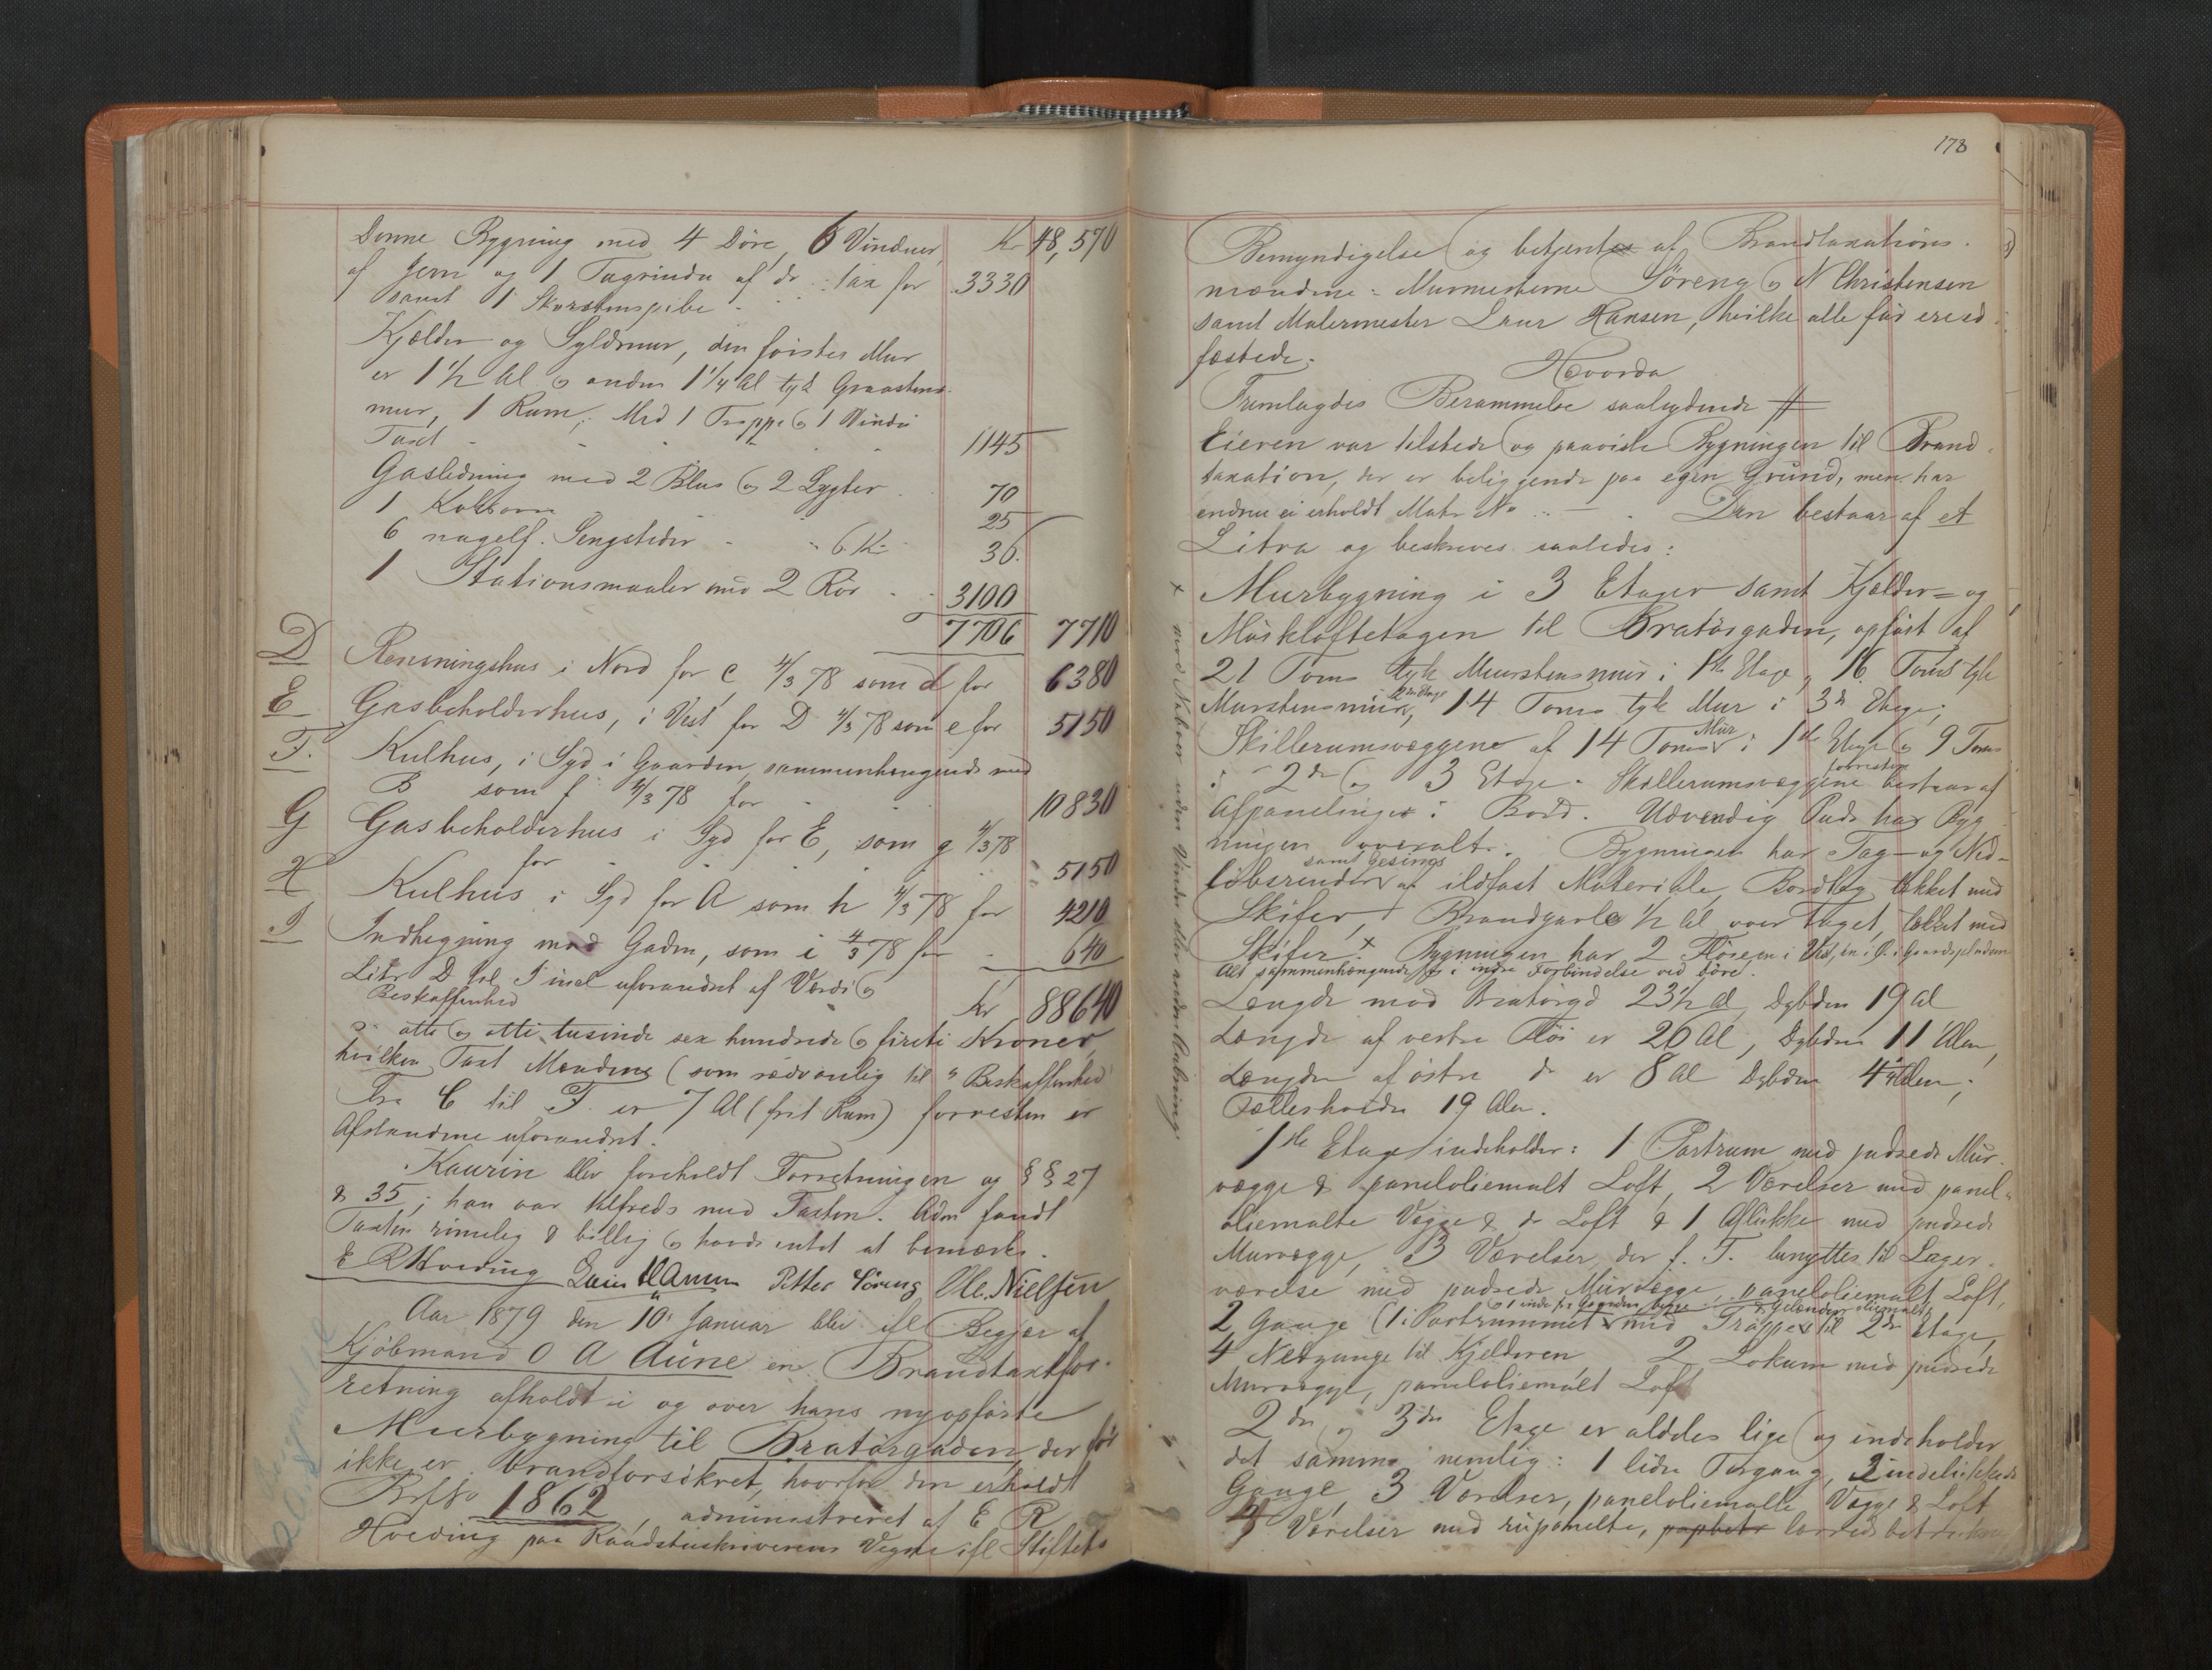 Denne Bygning med 4 Döre, 6 Vinduer, Kr 48,570
af Jern og 1 Tagrinde af do : tax for 3330
samt 1 Skorstenspibe
Kjælder og Syldmur, den förstes Mur
er 1 1/2 Al og anden 1 1/4 Al tyk Graastens-
mur, 1 Rum,. Med 1 Trappe og 1 Vindu
Taxt 1145
Gasledning med 2 Blus og 2 Lygter 70
1 Kakkelovn 25
6 nagelf. Sengsteder - " 6 Kr 36.
1 Stationsmaaler med 2 Rör 3100
7706 7710
D Rensningshus i Nord for C 4/3 78 som d for 6380
E Gasbeholderhus, i Vest for D 4/3 78 som e for 5150
F. Kulhus, i Syd i Gaarden, sammenhængende med
B som f 4/3 78 for 10830
G Gasbeholderhus i Syd for E, som g 4/3 78
for 5150
H Kulhus i Syd for A som h 4/3 78 for 4210
I Indhegning mod Gaden, som i 4/3 78 for 640
Litr D til I incl uforandret af Værdi og
Beskaffenhed Kr 88640
: otte og otti tusinde sex hundrede og fireti Kroner,
hvilken Taxt Mændene (som sædvanlig til "Beskaffenhed"
Fra C til F. er 7 Al (frit Rum) forresten er
Afstandene uforandret.
Kaurin blev foreholdt Forretningen og §§ 27
& 35; han var tilfreds med Taxten. Adm fandt
Taxten rimelig & billig og havde intet at bemærke.
E R Hveding Laur Hansen Petter Söreng Ole. Nielsen
Aar 1879 den 10. Januar blev efl Begjær af
Kjöbmand O A Aune en Brandtaxtfor-
retning afholdt i og over hans nyopförte
Muurbygning til Bratörgaden, der för
ikke er brandforsikret, hvorfor den erholdt
1862, administreret af E R
Hveding paa Raadstueskriverens Vegne efl Stiftets
178
Bemyndigelse og betjentes af Brandtaxations-
mændene: Murmesterne Söreng og N Christensen
samt Malermester Laur Hansen, hvilke alle för er eed-
fæstede.
Hvorda
Fremlagdes Berammelse saalydende #
Eieren var tilstede og paaviste Bygningen til Brand-
taxation, der er beliggende paa egen Grund, men har
endnu ei erholdt Matr No .. — . Den bestaar af et
Litra og beskrives saaledes:
Murbygning i 3 Etager samt Kjælder- og
Mörkloftetagen til Bratörgaden, opfört af
21 Toms tyk Muurstensmuur i 1ste Etage, 16 Toms tyk
Murstensmuur, i 2den Etage 14 Toms tyk Mur i 3de Etage;
Skillerumsvæggene af 14 Toms Mur i 1ste Etage og 9 Toms
i 2den og 3 Etage. Skillerumsvæggene forresten bestaar af
Afpanelinger i Bord. Udvendig Puds har Byg-
ningen overalt. Bygningen har Tag- og Ned-
löbsrender samt Gesims af ildfast Materiale, Bordtag tækket med
Skifer, 1 Brandgavle 1/2 Al over Taget, tækket med
Skifer. x Bygningen har 2 Flöie en i Vest, en i Ö. i Gaardspladsen
Alt sammenhængende og i indre Forbindelse ved Döre.
Længde mod Bratörgd 23 1/2 Al, Dybden 19 Al
Længde af vestre Flöi er 20 Al, Dybden 11 Alen,
Længden af östre do er 8 Al Dybden 4 Alen;
Fælleshöide 19 Alen.
1ste Etage indeholder: 1 Portrum med pudsede Mur-
vægge & paneloliemalt Loft, 2 Værelser med panel-
oliemalte Vægge & do Loft & 1 Aflukke med pudsede
Murvægge, 3 Værelser, der f. T. benyttes til Lager-
værelse med pudsede Murvægge, paneloliemalt Loft,
2 Gange (1 i Portrummet og 1 inde fr Gaarden, begge med Trapper & Gelænder oliemalt til 2den Etage,
4 Nedgange til Kjelderen 2 Lokum med pudsede
Murvægge, paneloliemalt Loft
2den og 3die Etage er aldeles lige og indeholder
det samme nemlig: 1 liden Forgang, 2 indelukkede
Gange, 3 Værelser, paneloliemalte Vægge & Loft
4 Værelser med rupanelte, papbetr lærredsbetrukne
x mod Naboer uden Vindu eller anden Aabning.